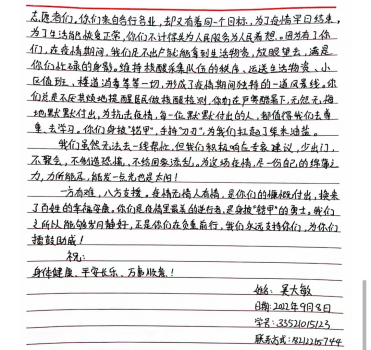 志愿者们。你们来自各行各业,却又有着同一个目标,为了疫情早日结束,
为了生活能恢复正常,你们不计得失为人民服务为人着想。因为有了你
们,在疫情期间,我们足不出户就能拿到生活物资,放眼望去,满是
你们忙碌的身影。维持核酸采集队伍的秩序、运送生活物资、小
区值班、楼道消毒等一切,形成了疫情期间独特的一道风景线。你
们总是不厌其烦地提醒居民做核酸检测,你们在尽责,无怨无悔
地默默付出,为抗击疫情,每一位默默付出的人,都值得我们去尊
重、去学习。你们身披"铠甲",手持"刀刃",为我们扛起了柴米油盐。
我们虽然无法去一线帮忙,但我们积极响应专家建议,少出门,
不聚众,不制造恐慌,不给国家添乱。为这场疫情,尽一份自己的绵薄之
力,力所能及,能发一点光也是太阳!
一方有难,八方支援。疫情无情人有情,是你们的慷慨付出,换来
了百姓的幸福安康。你们是疫情里最美的逆行者,是身披"铠甲"的勇士。我们
之所以能够岁月静好,正是你们在负重前行,我们永远支持你们,为你们
擂鼓助威!
祝:
身体健康、平安长乐、万事胜意!
姓名:吴大敏
日期:2022年9月8日
学号:33521015123
联系方式:18212215744